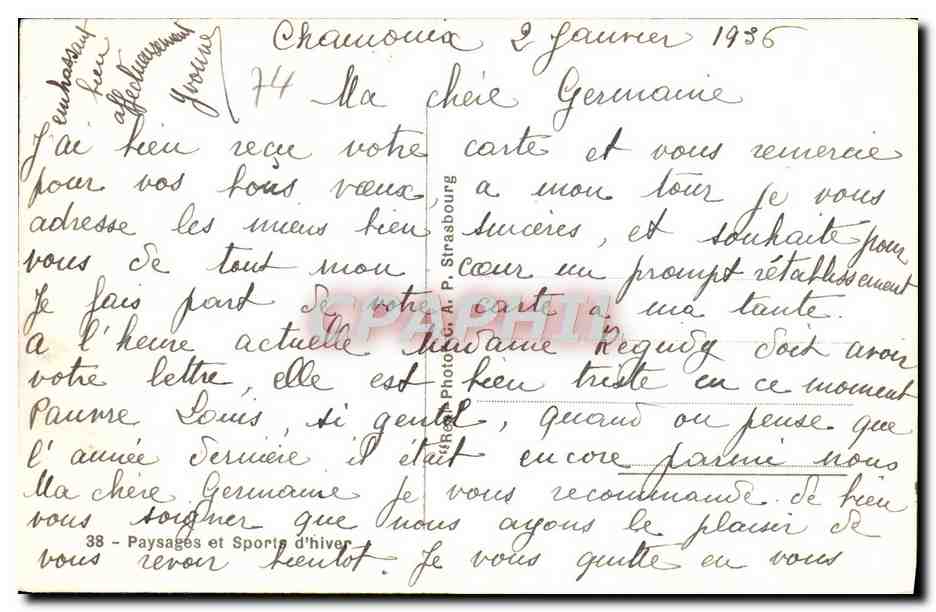 Chamonix 2 Janvier 1936
74
Ma chère Germaine
J'ai bien reçu votre carte et vous remercie
pour vos bons vœux, a mon tour je vous
adresse les miens bien sincères, et souhaite pour
vous de tout mon cœur un prompt rétablissement
Je fais part de votre carte a ma tante.
a l'heure actuelle Madame doit avoir
votre lettre, elle est bien triste en ce moment
Pauvre Louis, si gentil, quand on pense que
l'année dernière il était encore parmi nous
Ma chère Germaine je vous recommande de bien
vous soigner que nous ayons le plaisir de
vous revoir bientot. Je vous quitte en vous
embrassant
bien
affectueusement
Yvonne
38 - Paysages et Sports d'hiver
"Real-Photo" C. A. P. Strasbourg
CPAPHIL